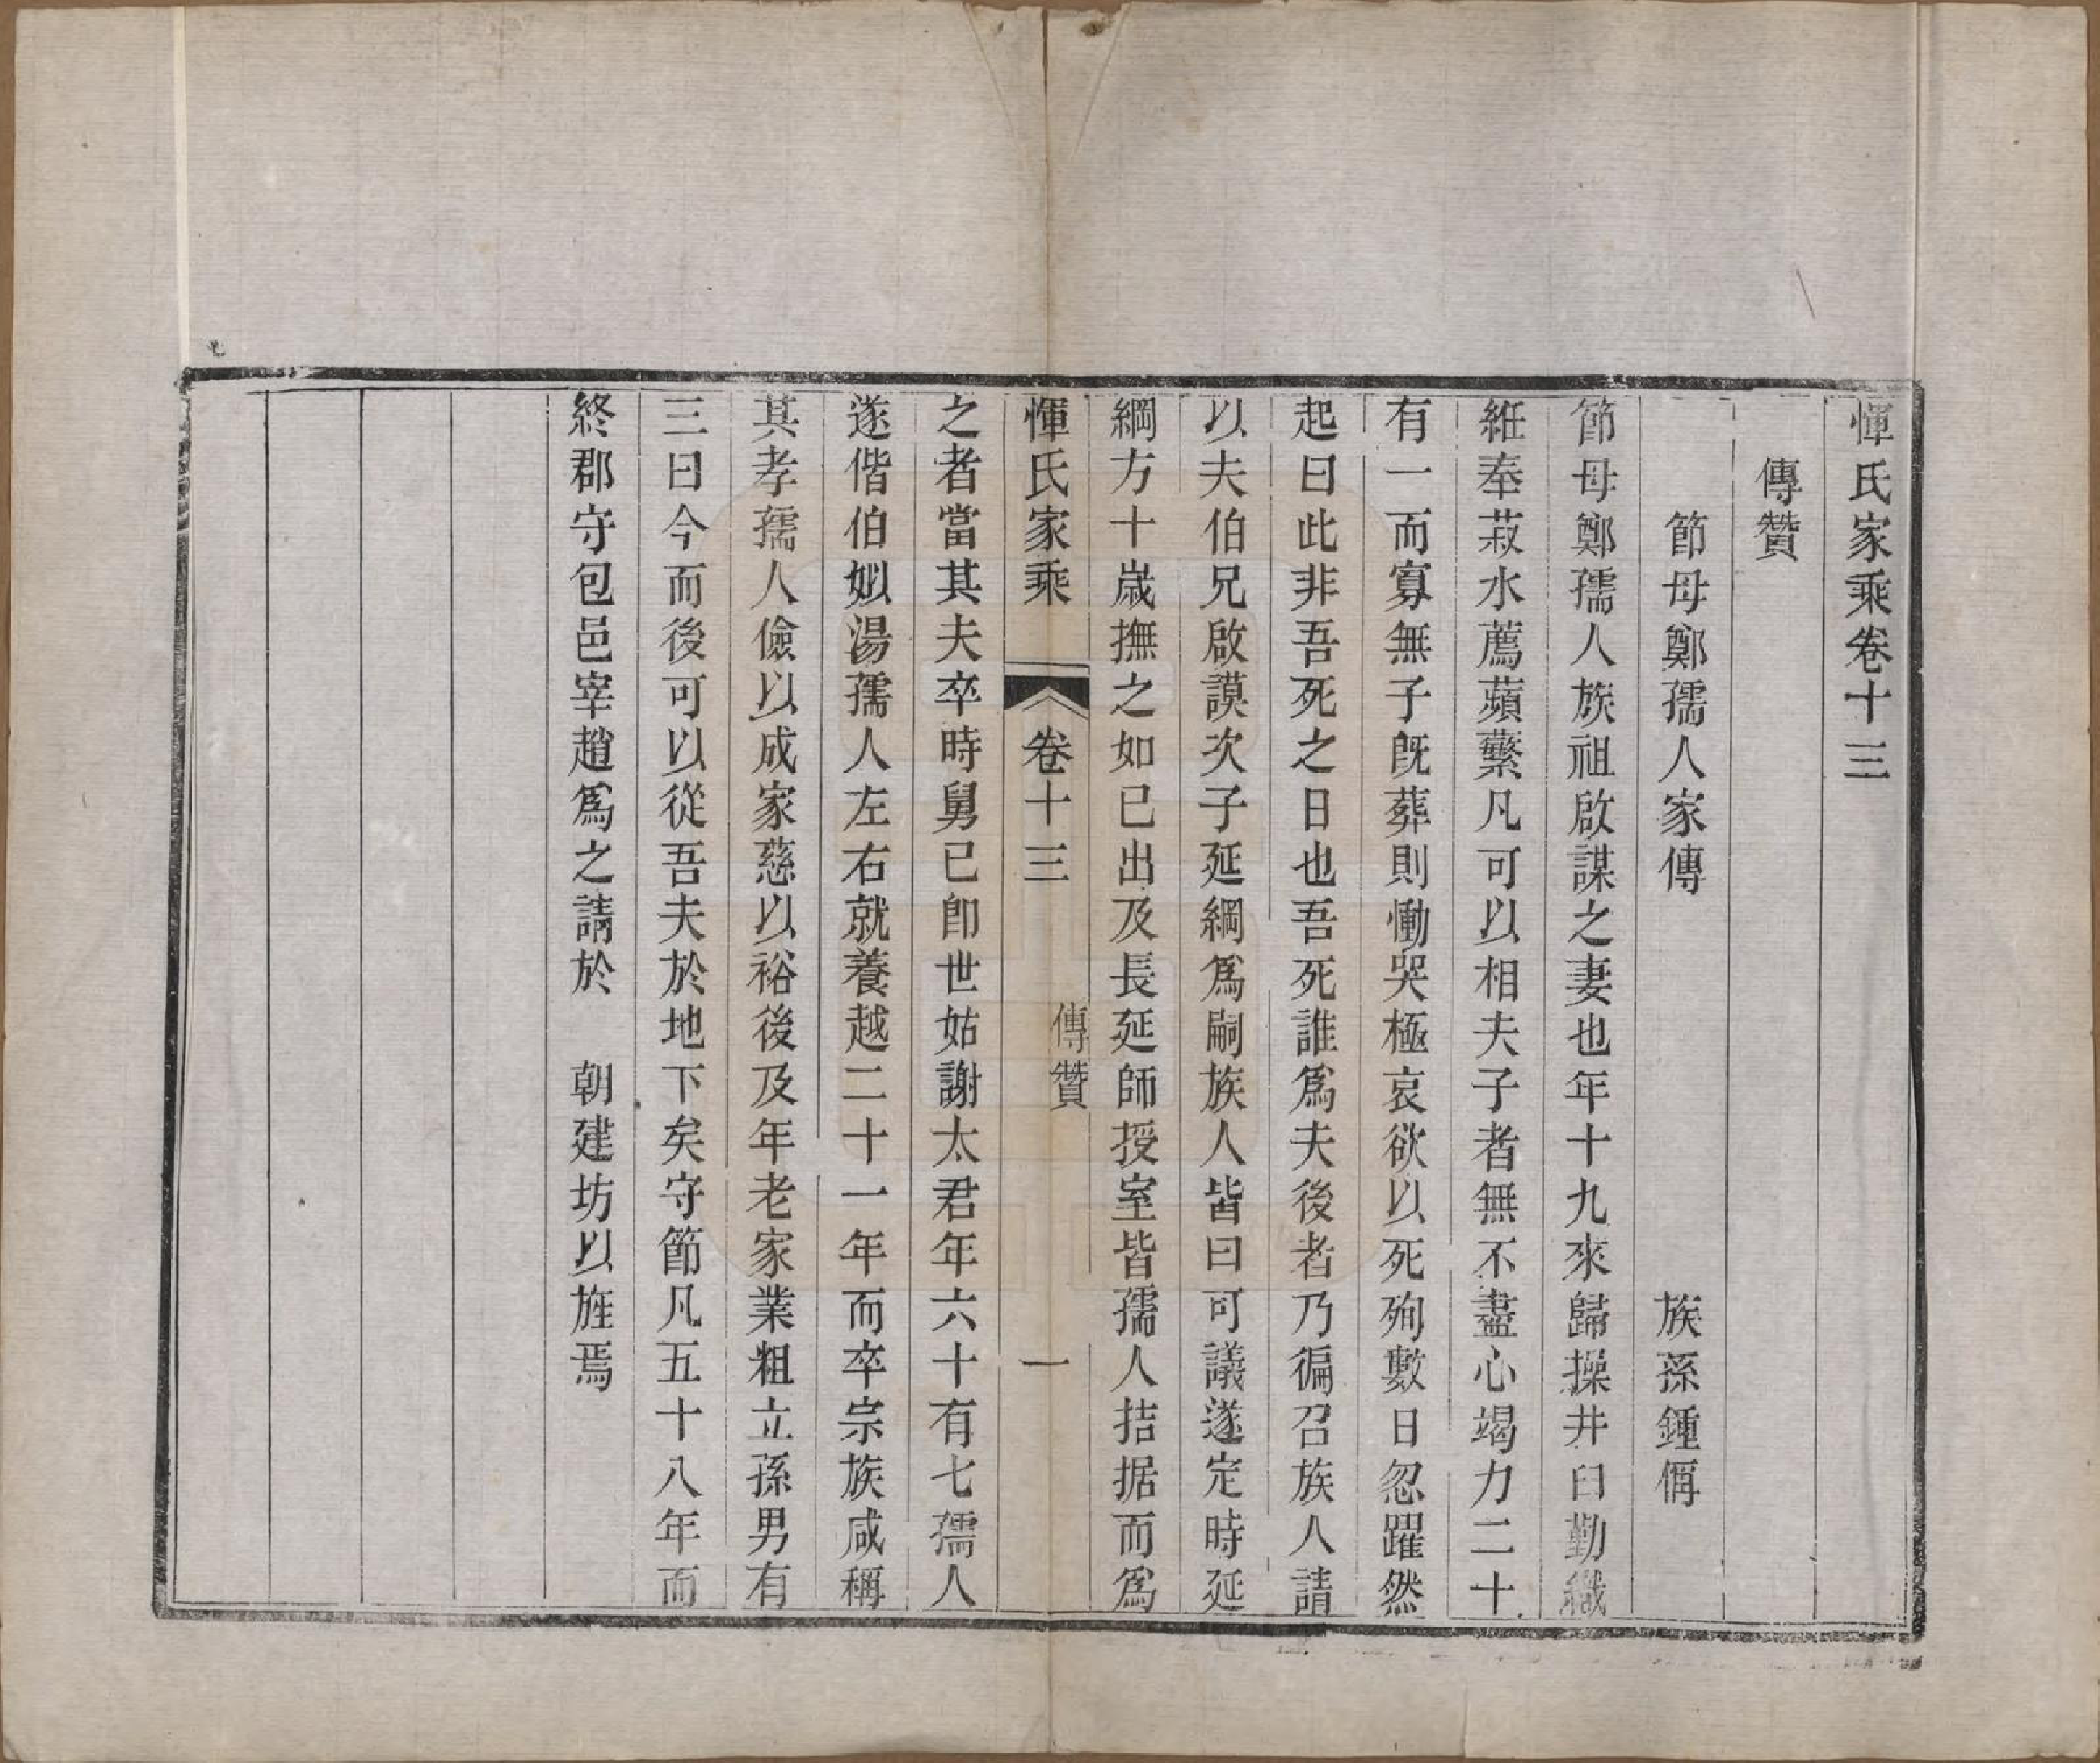 惲氏家乘卷十三
傳贊
節母鄭孺人家傳　族孫鍾偁
節母鄭孺人族祖啟謀之妻也年十九來歸操井臼勤織
絍奉菽水薦蘋蘩凡可以相夫子者無不盡心竭力二十
有一而寡無子旣葬則慟哭極哀欲以死殉數日忽躍然
起曰此非吾死之日也吾死誰爲夫後者乃徧召族人請
以夫伯兄啟謨次子延綱爲嗣族人皆曰可議遂定時延
綱方十歲撫之如已出及長延師授室皆孺人拮据而爲
惲氏家乘　卷十三　傳贊　一
之者當其夫卒時舅已卽世姑謝太君年六十有七孺人
遂偕伯姒湯孺人左右就養越二十一年而卒宗族咸稱
其孝孺人儉以成家慈以裕後及年老家業粗立孫男有
三曰今而後可以從吾夫於地下矣守節凡五十八年而
終郡守包邑宰趙爲之請於　朝建坊以旌焉